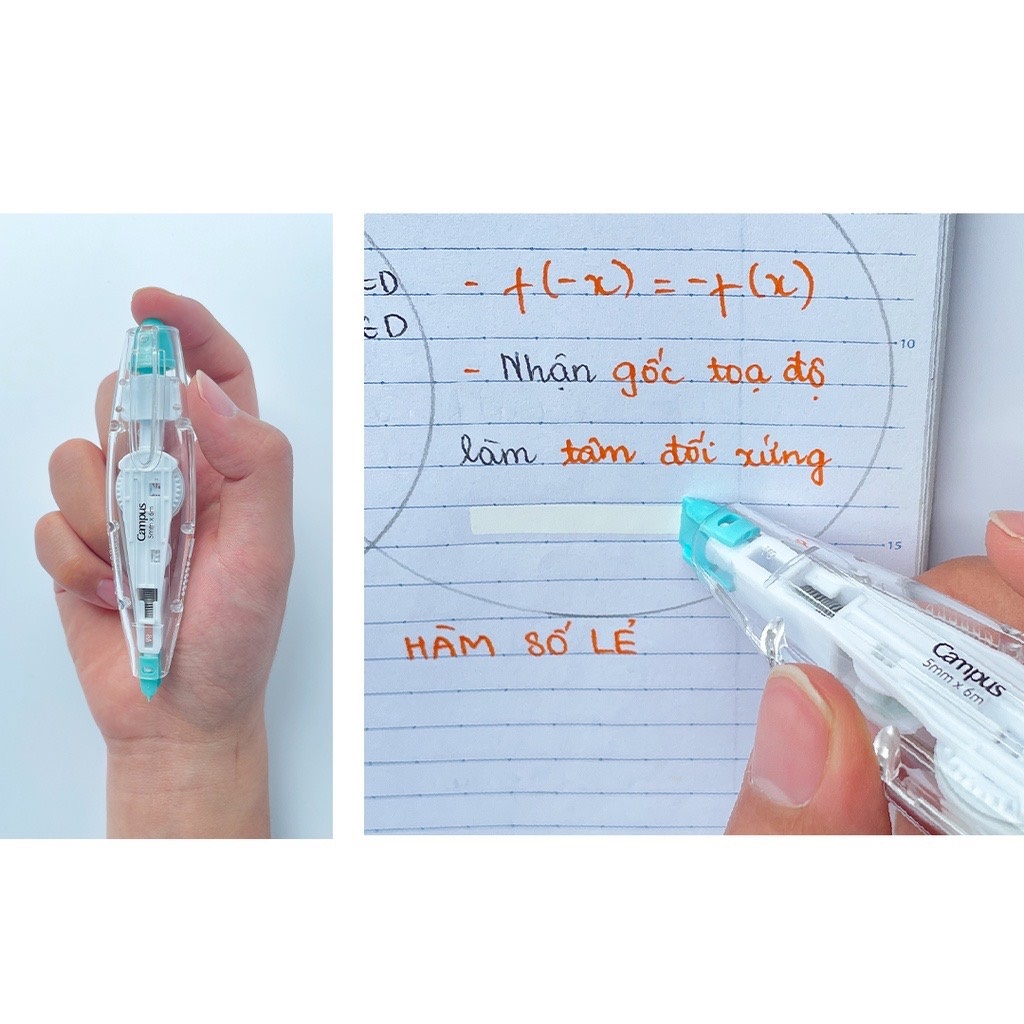 Campus
5mm x 6m
∈D
∈D
- f(-x) = -f(x)
10
- Nhận gốc toạ độ
làm tâm đối xứng
15
HÀM SỐ LẺ
Campus
5mm x 6m